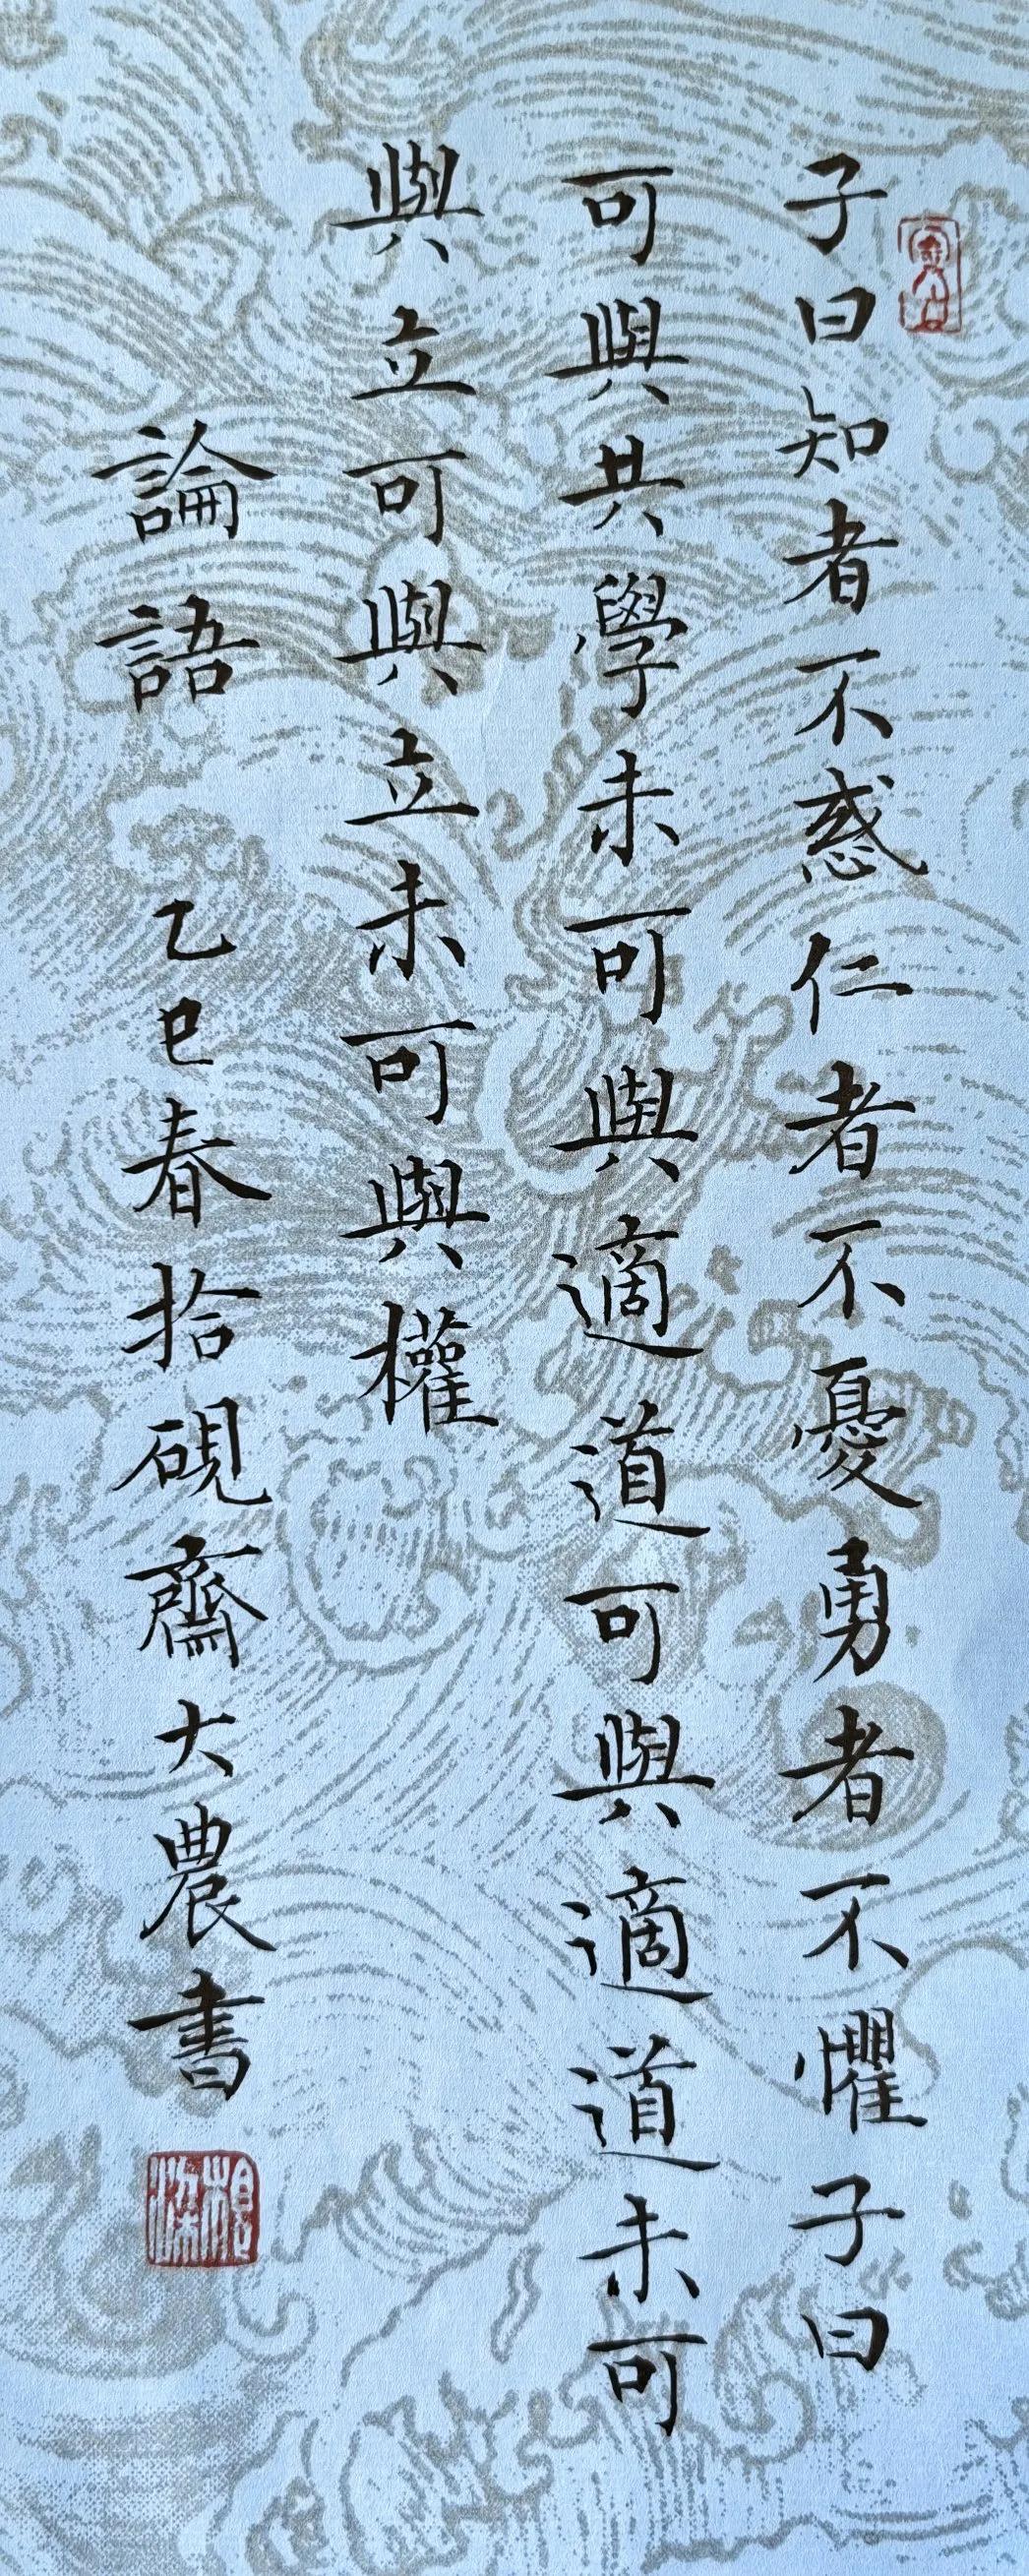 子曰知者不惑仁者不憂勇者不懼子曰
可與共學未可與適道可與適道未可
與立可與立未可與權
論語
乙巳春拾硯齋大農書